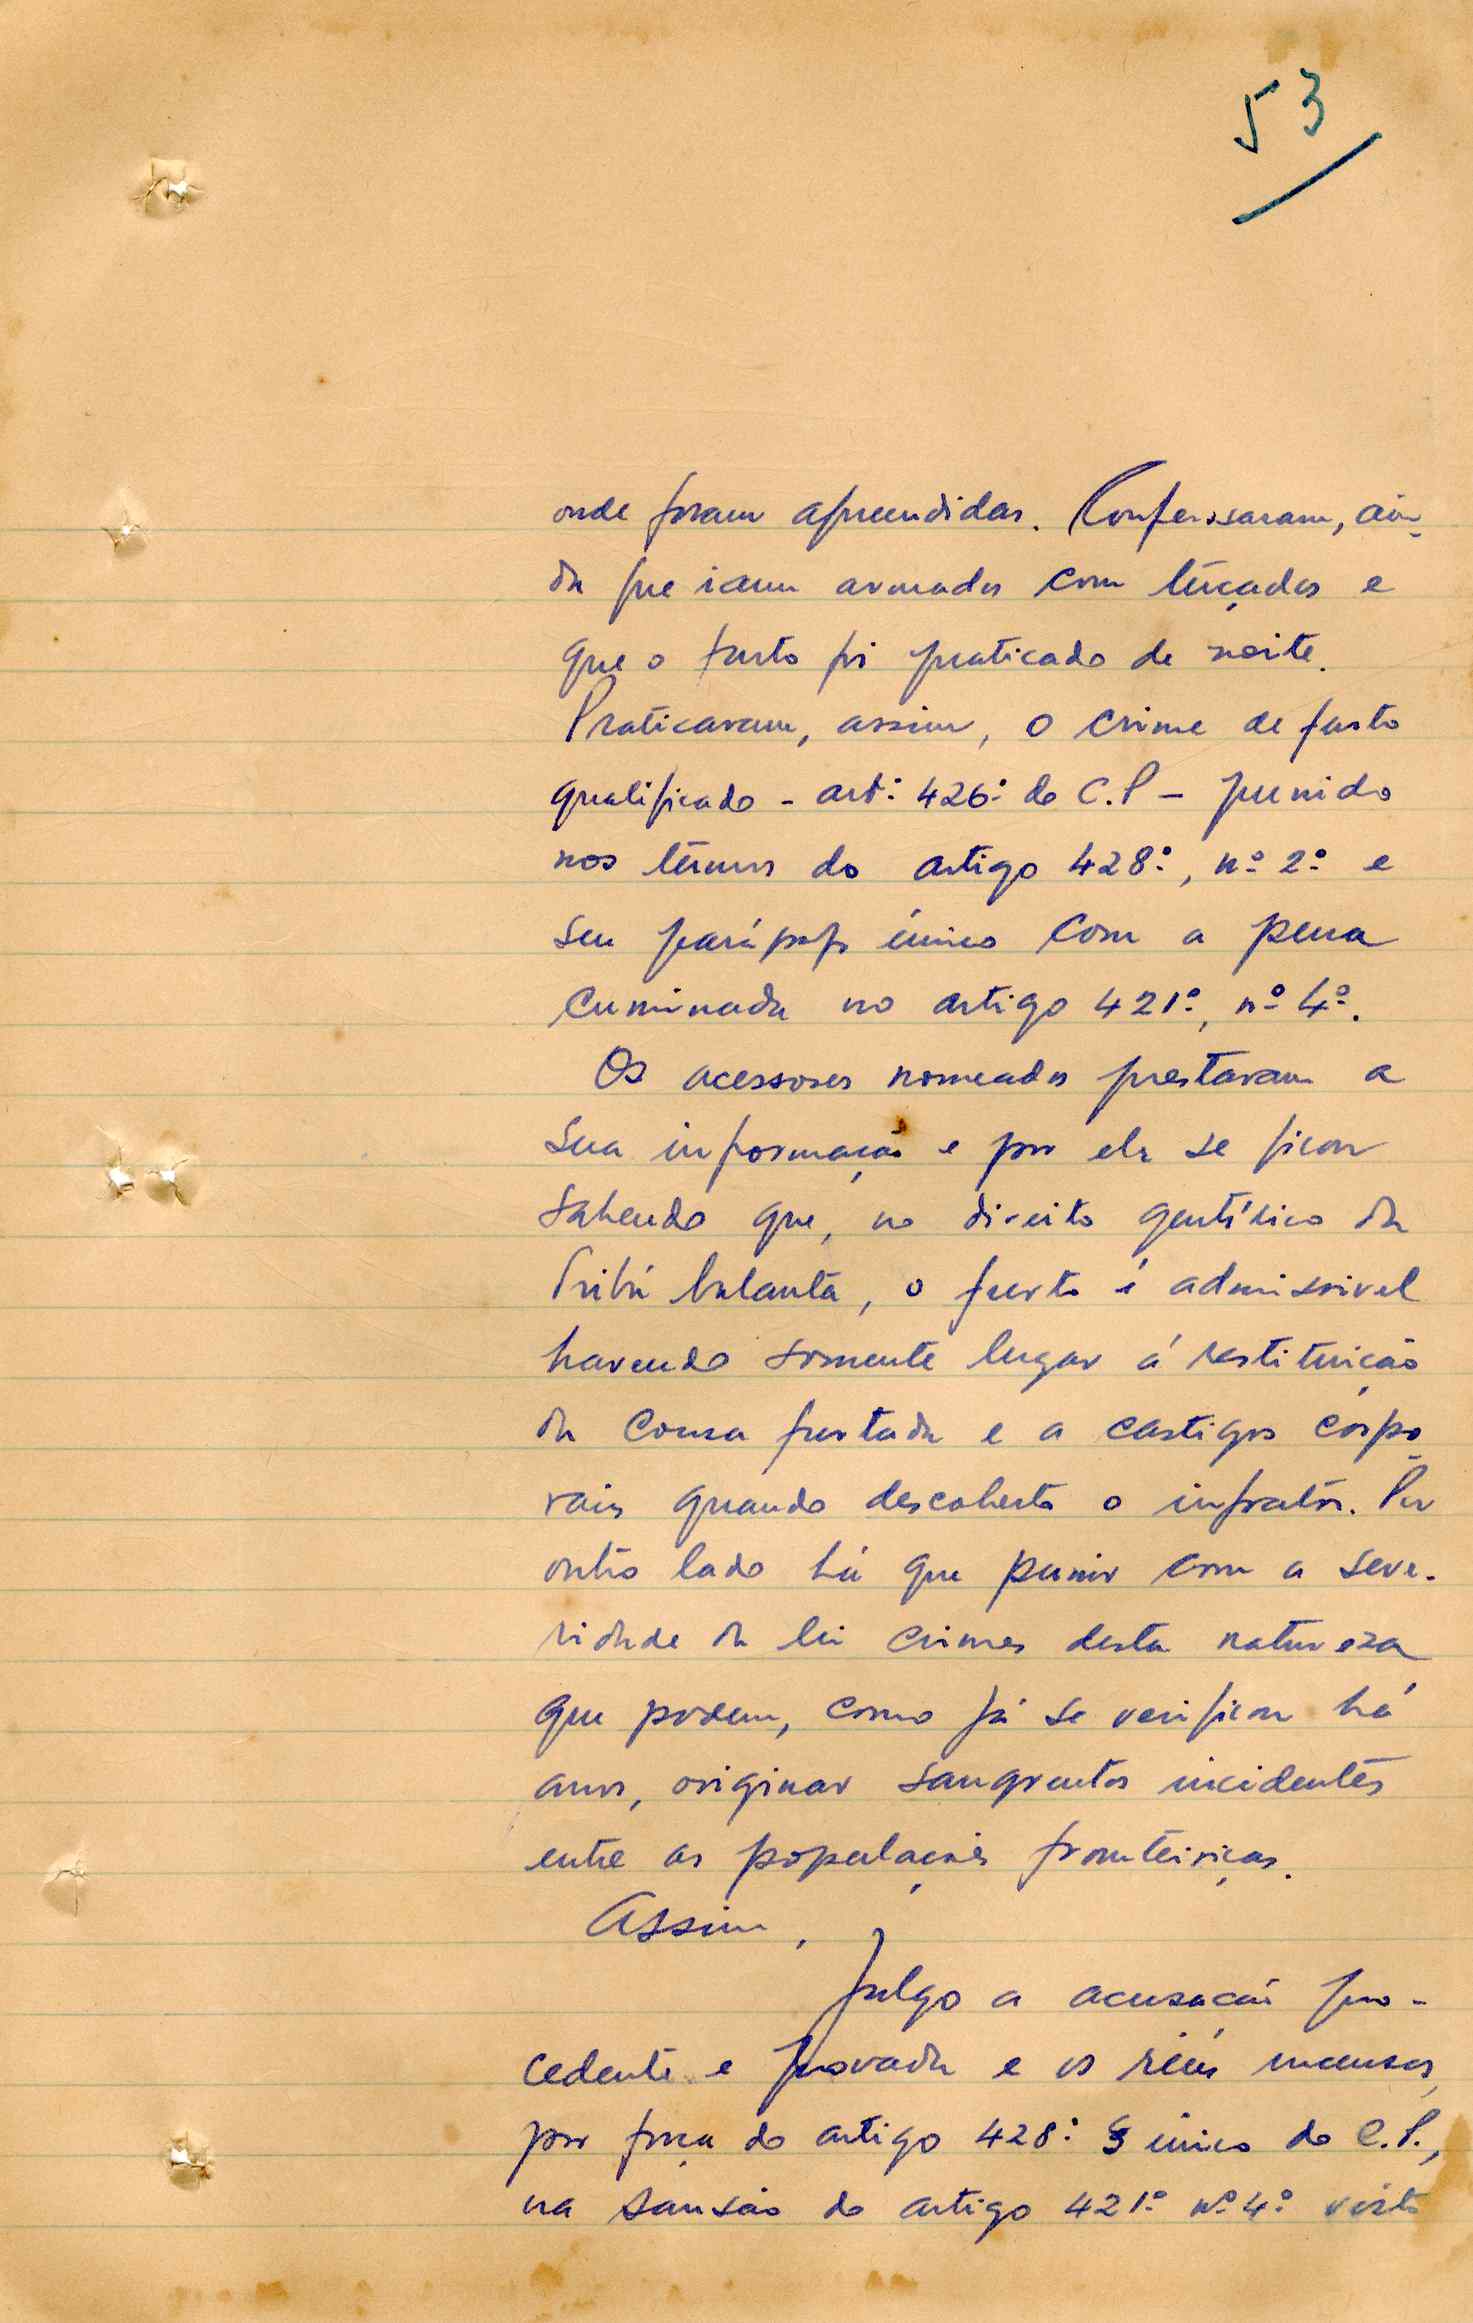 53
onde foram apreendidas. Confessaram, ain-
da que iam armados com terçados e
que o furto foi praticado de noite.
Praticaram, assim, o crime de furto
qualificado - artº 426º do C.P - punido
nos têrmos do artigo 428º, nº 2º e
seu parágrafo único com a pena
cuminada no artigo 421º, nº 4º.
Os acessores nomeados prestaram a
sua informação e por ela se ficou
sabendo que, no direito gentílico da
Tribú balanta, o furto é admissivel
havendo somente lugar á restituição
da cousa furtada e a castigos córpo-
rais quando descoberto o infratôr. Por
outro lado há que punir com a seve-
ridade da lei crimes desta natureza
que podem, como já se verificou há
anos, originar sangrentos incidentes
entre as populações fronteiriças.
Assim,
Julgo a acusação pro-
cedente e provada e os réus incursos,
por força do artigo 428º § único do C.P.,
na sansão do artigo 421º nº 4º visto